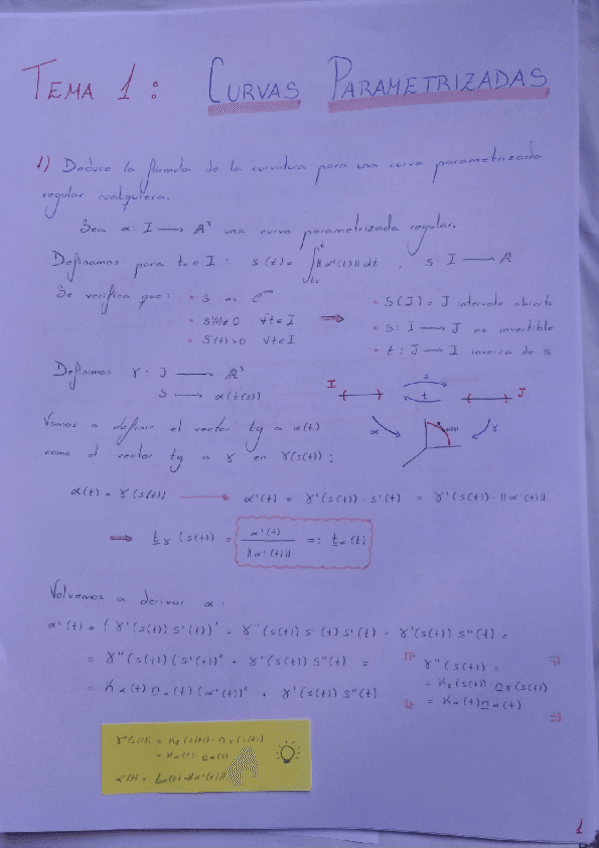 TEMA 1: CURVAS PARAMETRIZADAS
1) Deduce la fórmula de la curvatura para una curva parametrizada
regular cualquiera.
Sea α: I → ℝ³ una curva parametrizada regular.
Definamos para t₀ ∈ I: s(t) = ∫_{t₀}^{t} ||α'(t)|| dt, s: I → ℝ
Se verifica que: • s es C^∞ • s(I) = J intervalo abierto
• s'(t) ≠ 0 ∀t∈I ⇒ • s: I → J es invertible
• s'(t) > 0 ∀t∈I • t: J → I inversa de s
Definimos γ: J → ℝ³
s → α(t(s))
I s t J
α γ
Vamos a definir el vector tg a α(t)
como el vector tg a γ en γ(s(t)):
α(t) = γ(s(t)) → α'(t) = γ'(s(t)) · s'(t) = γ'(s(t)) · ||α'(t)||
⇒ t_γ(s(t)) = α'(t) / ||α'(t)|| =: t_α(t)
Volvemos a derivar α.
α''(t) = (γ'(s(t)) s'(t))' = γ''(s(t)) s'(t) s'(t) + γ'(s(t)) s''(t) =
= γ''(s(t)) (s'(t))² + γ'(s(t)) s''(t) =
= K_α(t) n_α(t) (α'(t))² + γ'(s(t)) s''(t)
γ''(s(t)) =
= K_γ(s(t)) n_γ(s(t))
= K_α(t) n_α(t)
γ''(s(t)) = K_γ(s(t)) · n_γ(s(t))
= K_α(t) · n_α(t)
α'(t) = t_α(t) · ||α'(t)||
1